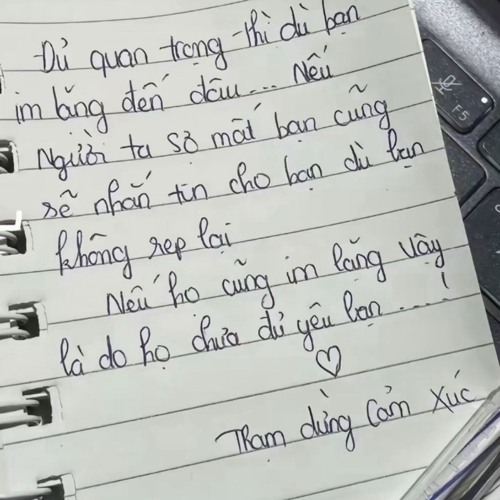 Đủ quan trọng thì dù bạn
im lặng đến đâu... Nếu
Người ta sợ mất bạn cũng
sẽ nhắn tin cho bạn dù bạn
không rep lại
Nếu họ cũng im lặng vậy
là do họ chưa đủ yêu bạn....!
Trạm dừng Cảm Xúc
F5